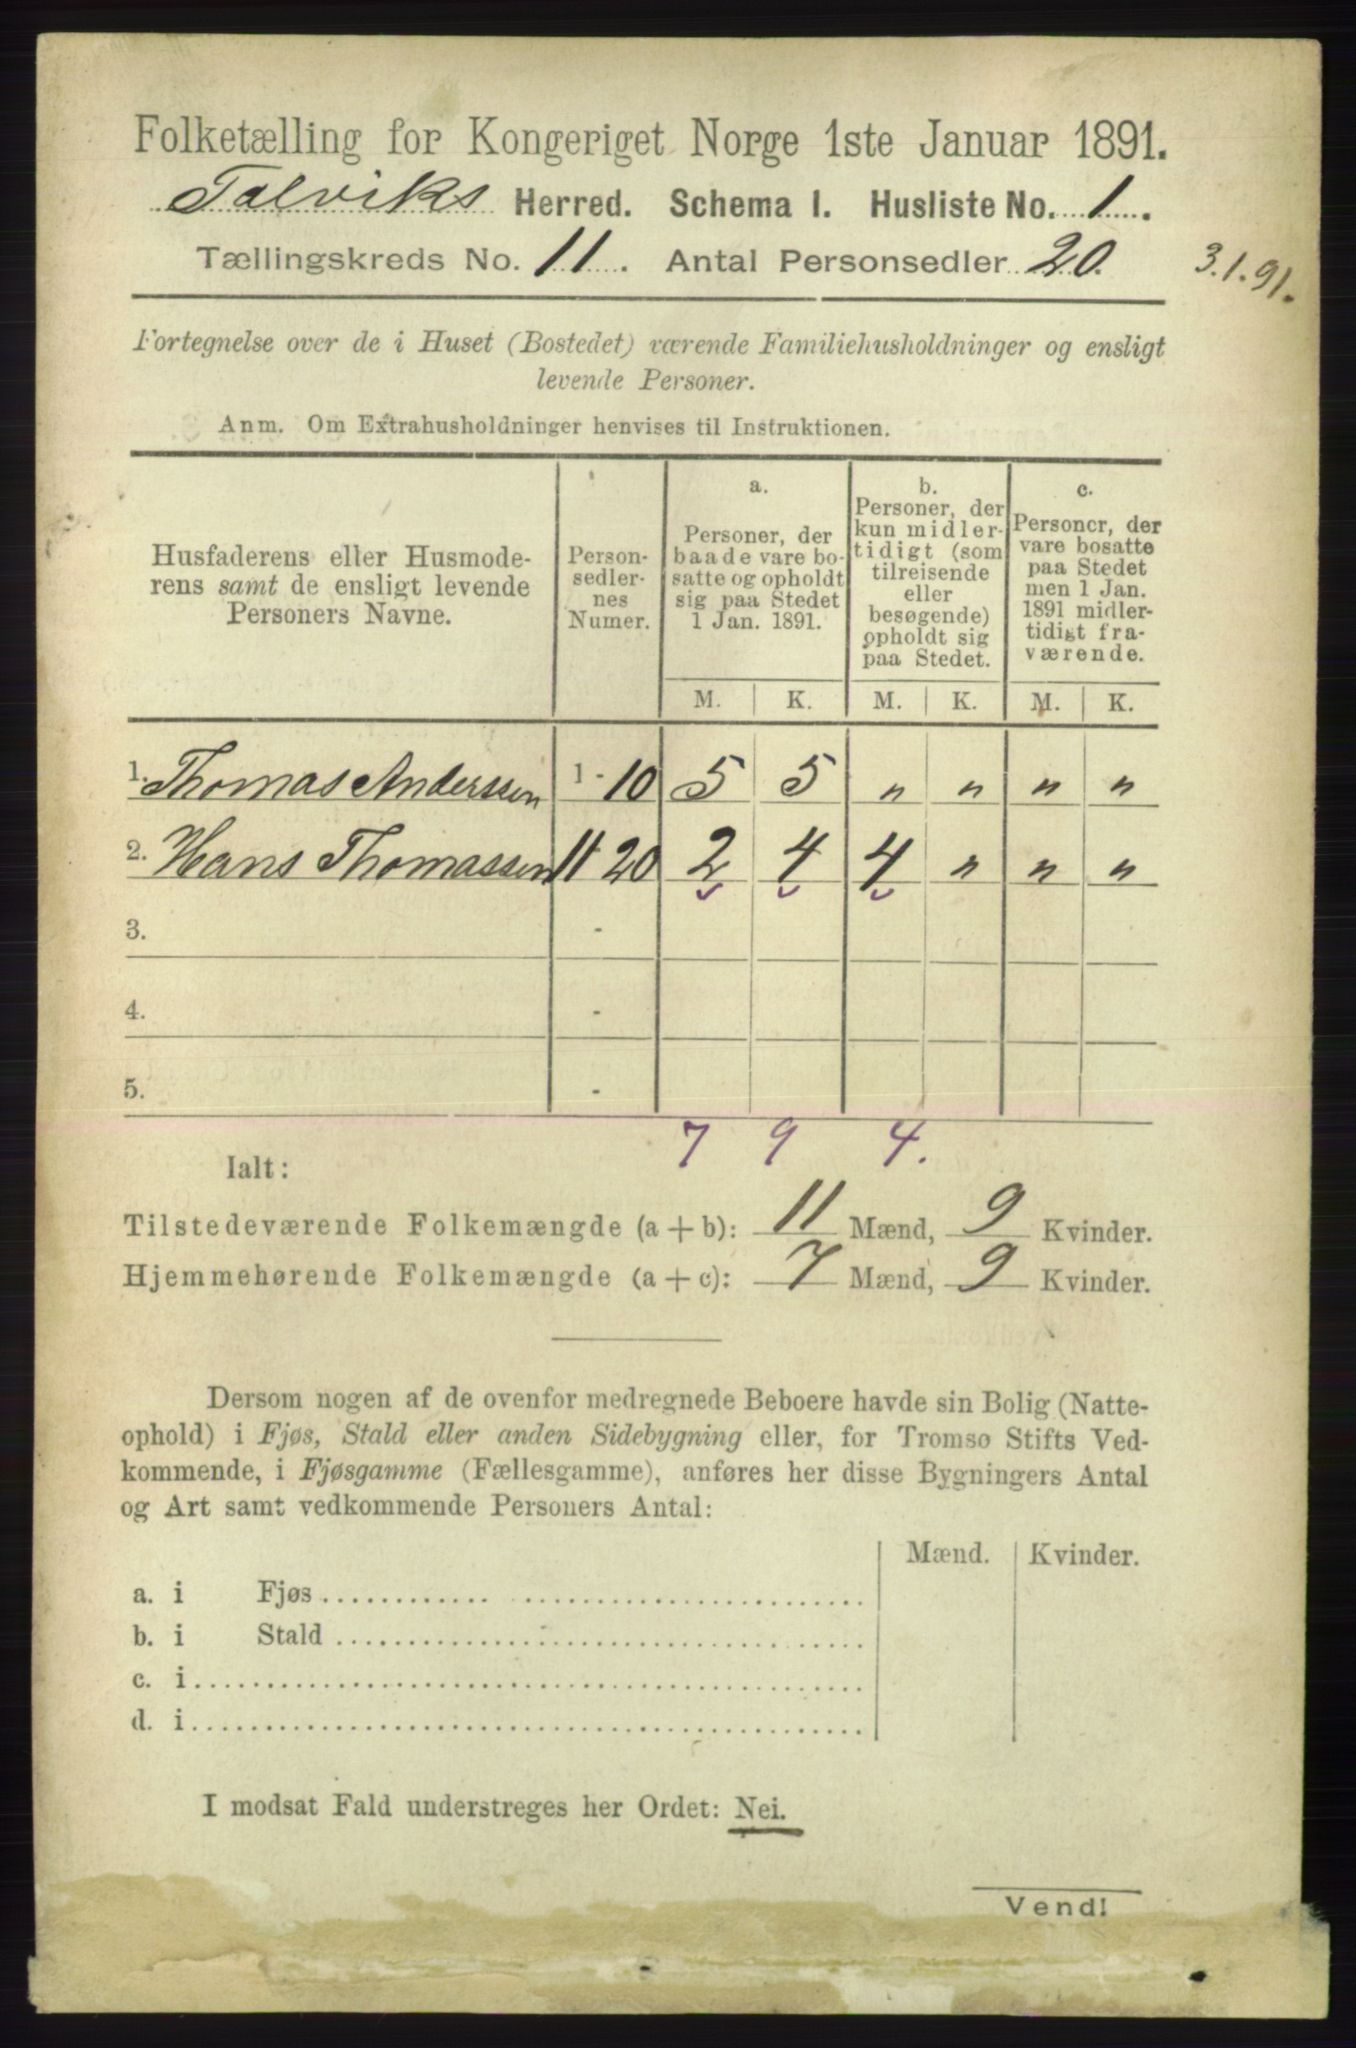 Folketælling for Kongeriget Norge 1ste Januar 1891.
Talviks Herred. Schema I. Husliste No. 1.
Tællingskreds No. 11. Antal Personsedler 20.
3.1.91.
Fortegnelse over de i Huset (Bostedet) værende Familiehusholdninger og ensligt
levende Personer.
Anm. Om Extrahusholdninger henvises til Instruktionen.
Husfaderens eller Husmode-
rens samt de ensligt levende
Personers Navne.
Person-
sedler-
nes
Numer.
a.
Personer, der
baade vare bo-
satte og opholdt
sig paa Stedet
1 Jan. 1891.
b.
Personer, der
kun midler-
tidigt (som
tilreisende
eller
besøgende)
opholdt sig
paa Stedet.
c.
Personer, der
vare bosatte
paa Stedet
men 1 Jan.
1891 midler-
tidigt fra-
værende.
M. K. M. K. M. K.
1. Thomas Anderssen 1 - 10 5 5 " " " "
2. Hans Thomassen 11 20 2 4 4 " " "
3. -
4. -
5. -
7 9 4.
Ialt:
Tilstedeværende Folkemængde (a + b): 11 Mænd, 9 Kvinder.
Hjemmehørende Folkemængde (a + c): 7 Mænd, 9 Kvinder.
Dersom nogen af de ovenfor medregnede Beboere havde sin Bolig (Natte-
ophold) i Fjøs, Stald eller anden Sidebygning eller, for Tromsø Stifts Ved-
kommende, i Fjøsgamme (Fællesgamme), anføres her disse Bygningers Antal
og Art samt vedkommende Personers Antal:
Mænd. Kvinder.
a. i Fjøs
b. i Stald
c. i
d. i
I modsat Fald understreges her Ordet: Nei.
Vend!